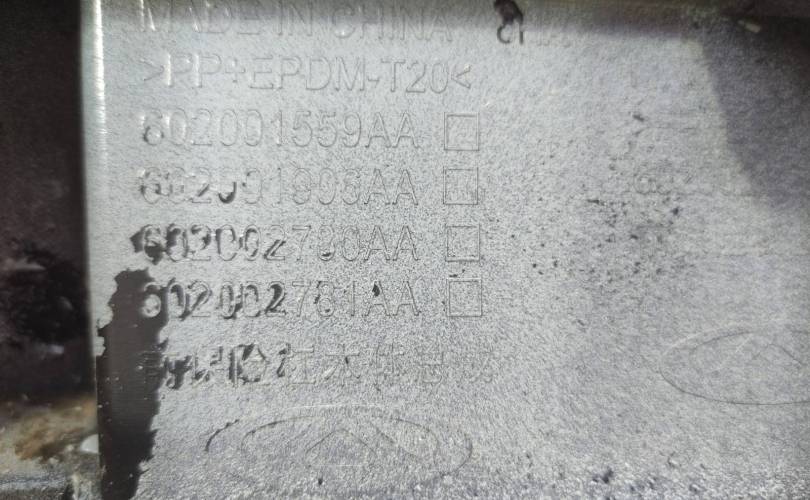 MADE IN CHINA
>PP+EPDM-T20<
602001559AA
602001908AA
602002780AA
602002781AA